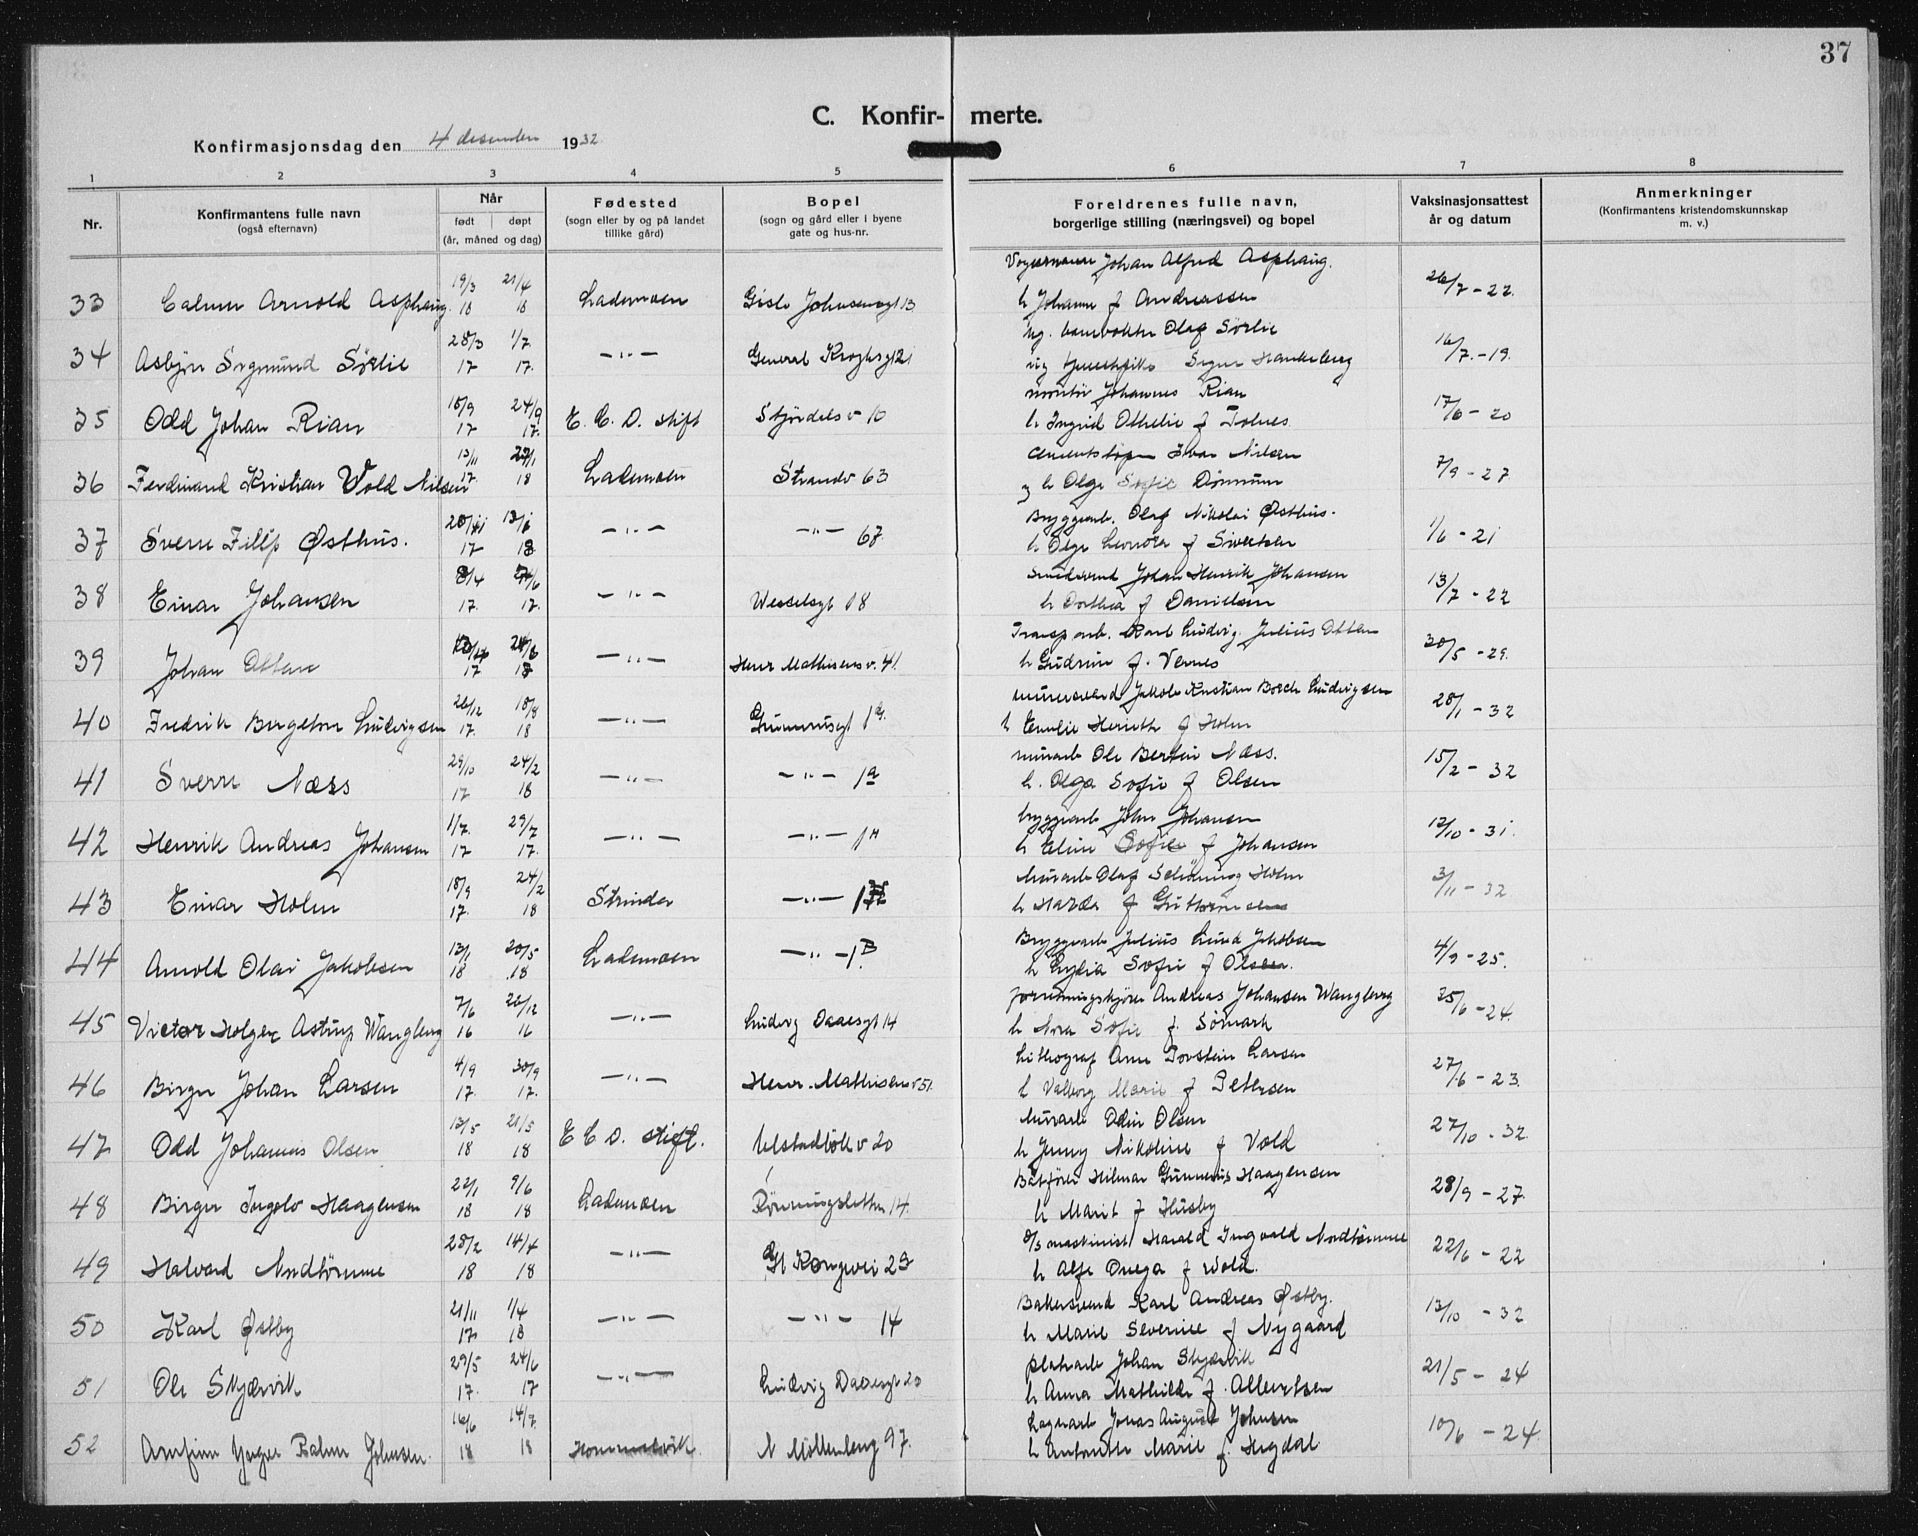 37
C. Konfir- merte.
Konfirmasjonsdag den 4 desember 1932
1 2 3 4 5 6 7 8
Nr.
Konfirmantens fulle navn
(også efternavn)
Når
født døpt
(år, måned og dag)
Fødested
(sogn eller by og på landet
tillike gård)
Bopel
(sogn og gård eller i byene
gate og hus-nr.
Foreldrenes fulle navn,
borgerlige stilling (næringsvei) og bopel
Vaksinasjonsattest
år og datum
Anmerkninger
(Konfirmantens kristendomskunnskap
m. v.)
Johan Alfred Asphaug.
33 Calmer Arnold Asphaug. 19/3 18 21/4 18 Lademoen Gisle Johnsensgt 13 h Johanne f Andreassen 26/7 - 22.
Olaf Sörlie
34 Asbjørn Sigmund Sörlie 28/3 17 1/7 17. —"— General Kroghsgt 21 Signe 16/7. - 19.
montør Johannes Rian
35 Odd Johan Rian 18/9 17 24/9 17. E. C. D. stift Stjördals v 10 h Ingrid Othelie f Tolnes 17/6 - 20
Ivar Nilsen
36 Ferdinand Kristian Vold Nilsen 13/11 17. 27/1 18 Lademoen Strandv 63 h Olga Sofie 7/9 - 27
Bryggearb. Olaf Nikolai Østhus.
37 Sverre Filip Østhus. 17 18 —"— —"— 67. h Olga Leonora f Sivertsen 1/6 - 21
Johan Henrik Johansen
38 Einar Johansen 8/4 17. 17. —"— Wesselsgt 18 h Dorthea f Danielsen 13/7 - 22
Transp arb. Karl Ludvig Julius Otten
39 Johan Otten 17 —"— Henr Mathisens v. 41. h Gudrun f. Vennes 30/5 - 29.
Jakob Kristian Bosch Ludvigsen
40 Fredrik Bergeton Ludvigsen 26/12 17. 18/8 18 —"— Gunnerusgt 1 G. h Emilie f Holm 28/1 - 32
murarb Ole Bertin Næss.
41 Sverre Næss 29/10 17 24/2 18 —"— —"— 1a h. Olga Sofie f Olsen 15/2 - 32
bryggearb John Johansen
42 Henrik Andreas Johansen 1/7. 17 29/7 17. —"— —"— 1H h Eline Sofie f Johansen 12/10 - 31.
Murarb Olaf Schöning Holm
43 Einar Holm 18/9 17. 24/2 18 Strinda —"— h Harda f Guttormsen 3/11 - 32
Bryggearb Julius Lund Jakobsen
44 Arnold Olai Jakobsen 13/1 18 20/5 18 Lademoen —"— 1B. h Lydia Sofie f Olsen. 4/9 - 25.
forretningskjörer Andreas Johansen Wangberg
45 Victor Holger Astrup Wangberg 7/6 16 26/12 16 —"— Ludvig Daaesgt 14 h Nora Sofie f. Sömark 25/6 - 24.
Lithograf Arne Torstein Larsen
46 Birger Johan Larsen 4/9 17. 30/9 17. —"— Henr. Mathisens v 51. h Valborg Marie f Petersen 27/6 - 23.
Murarb Odin Olsen
47 Odd Johannes Olsen 13/5 18 21/5 18 E C D. stift. Ulstadlökv 20 h Jenny Nikoline f Vold 27/10 - 32.
Båtförer Hilmar Gunnerius Haagensen
48 Birger Ingolv Haagensen 22/1 18 9/6 18 Lademoen Rönningsletten 14. h Marit f Husby 28/9 - 27.
maskinist Harald Ingvald Nordtömme
49 Halvard Nordtömme 28/2 18 14/4 18 —"— Gl Kongevei 29 h Alfe f Wold. 22/6 - 22
Bakersvend Karl Andreas Østby.
50 Karl Østby 21/11 17 1/4 18 —"— —"— 14 h Marie Severine f Nygaard 13/10 - 32
platearb Johan Skjærvik
51 Ole Skjærvik 29/5 17. 24/6 17 —"— Ludvig Daaesgt 20 h Anna Mathilde f. Albertsen 21/5 - 24
Lagerarb Jonas August Johnsen
52 Arnfinn Yngve Palmer Johnsen. 16/6 18 14/7. 18 Hommelvik N Möllenberg 97. h Antonette Marie f. Hegdal 10/6 - 24.